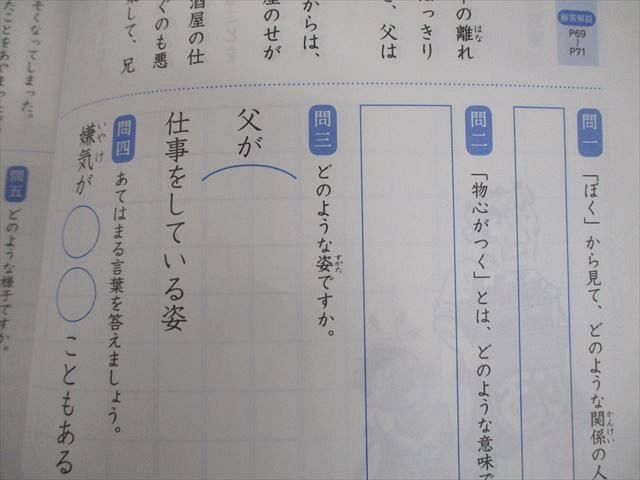 解答解説
P69
〜
P71
の離れ
はな
っきり
、父は
からは、
座のせが
酒屋の仕
ぐのも悪
して、兄
問一
「ぼく」から見て、どのような関係の人
かんけい
問二
「物心がつく」とは、どのような意味で
問三
どのような姿ですか。
すがた
父が
仕事をしている姿
問四
あてはまる言葉を答えましょう。
嫌気が
いやけ
こともある
そくなってしまった。
たことをあやま
問五
どのような様子ですか。